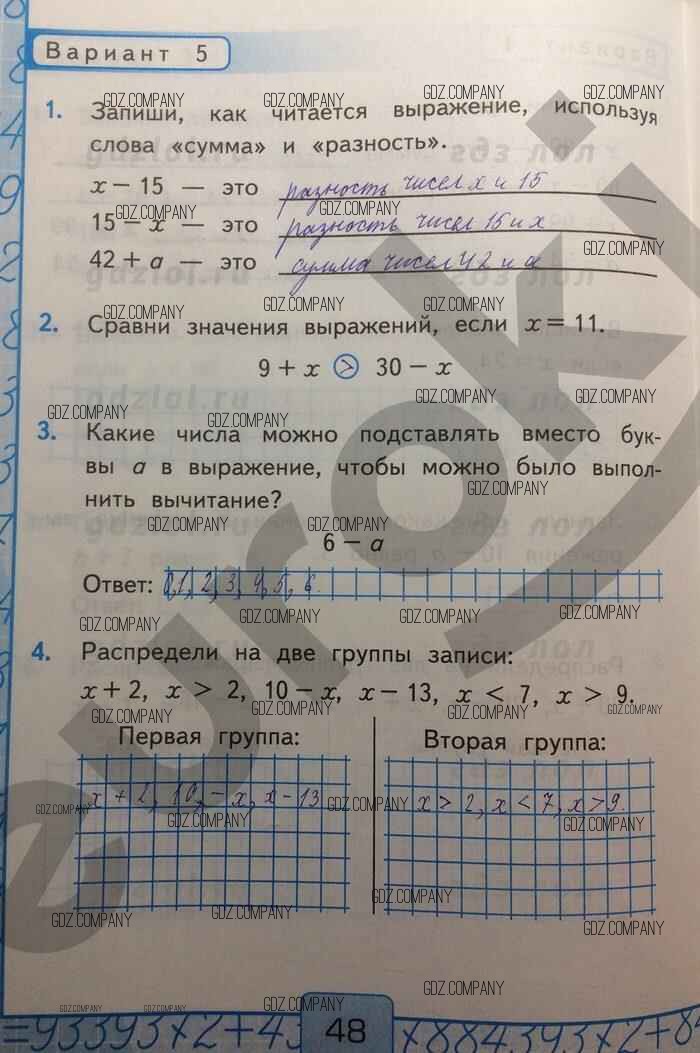 Вариант 5
1. Запиши, как читается выражение, используя
слова «сумма» и «разность».
x − 15 — это разность чисел x и 15
15 − x — это разность чисел 15 и x
42 + a — это сумма чисел 42 и a
2. Сравни значения выражений, если x = 11.
9 + x > 30 − x
3. Какие числа можно подставлять вместо бук-
вы a в выражение, чтобы можно было выпол-
нить вычитание?
6 − a
Ответ: 0,1,2,3,4,5,6.
4. Распредели на две группы записи:
x + 2, x > 2, 10 − x, x − 13, x < 7, x > 9.
Первая группа:
x + 2, 10 − x, x − 13
Вторая группа:
x > 2, x < 7, x > 9.
48
GDZ.COMPANY
euroki
gdzlol.ru